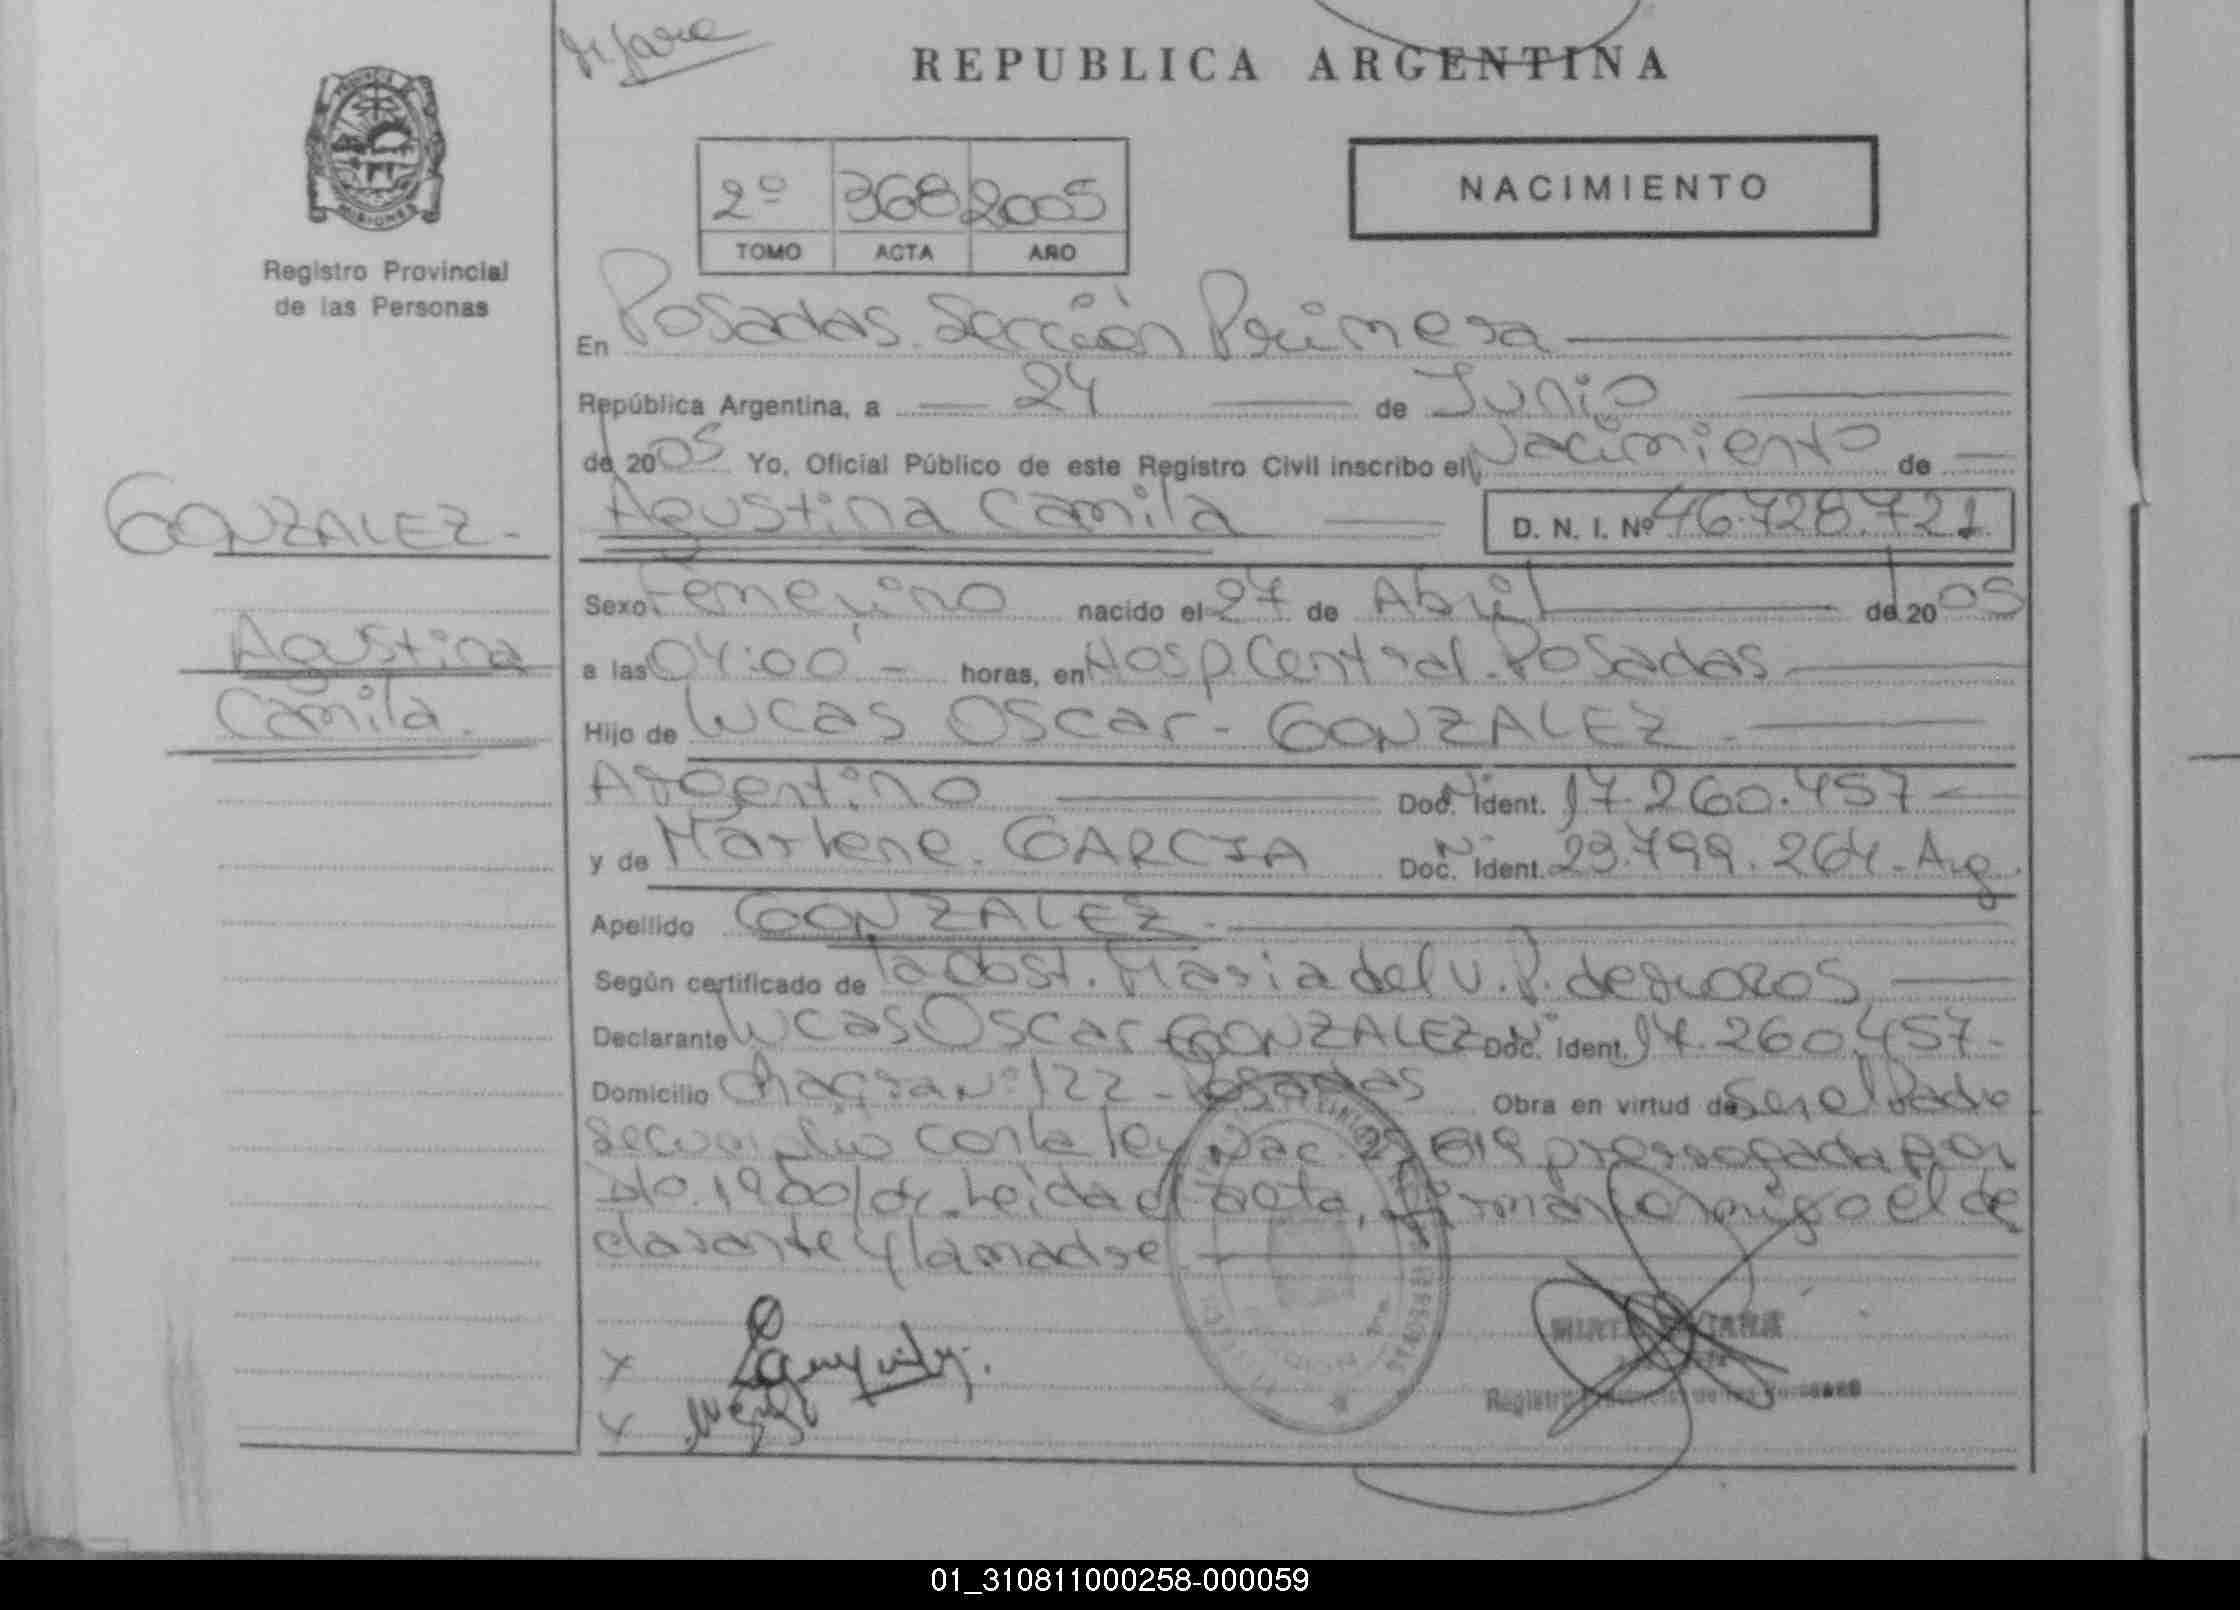 REPUBLICA ARGENTINA
MISIONES
Registro Provincial
de las Personas
2º 368 2005
TOMO ACTA AÑO
NACIMIENTO
En Posadas. Sección Primera
República Argentina, a 24 de Junio
de 2005 Yo, Oficial Público de este Registro Civil inscribo el Nacimiento de
GONZALEZ-
Agustina Camila D. N. I. Nº 46.728.721
Agustina
Camila.
Sexo Femenino nacido el 27 de Abril de 2005
a las 04:00 - horas, en Hosp Central. Posadas
Hijo de Lucas Oscar - GONZALEZ
Argentino Doc. Ident. 17.260.457 -
y de Marlene. GARCIA Doc. Ident. 23.799.264 - Arg.
Apellido GONZALEZ.
Según certificado de la Obst. Maria del V. P. de
Declarante Lucas Oscar GONZALEZ Doc. Ident. 17.260.457-
Domicilio Chacra Nº 122 - Posadas Obra en virtud de Ser el Padre
con la ley Nac. 25.819 prorrogada por
Leida el acta, firman conmigo el de
clarante y la madre
X
X
Registro
01_310811000258-000059